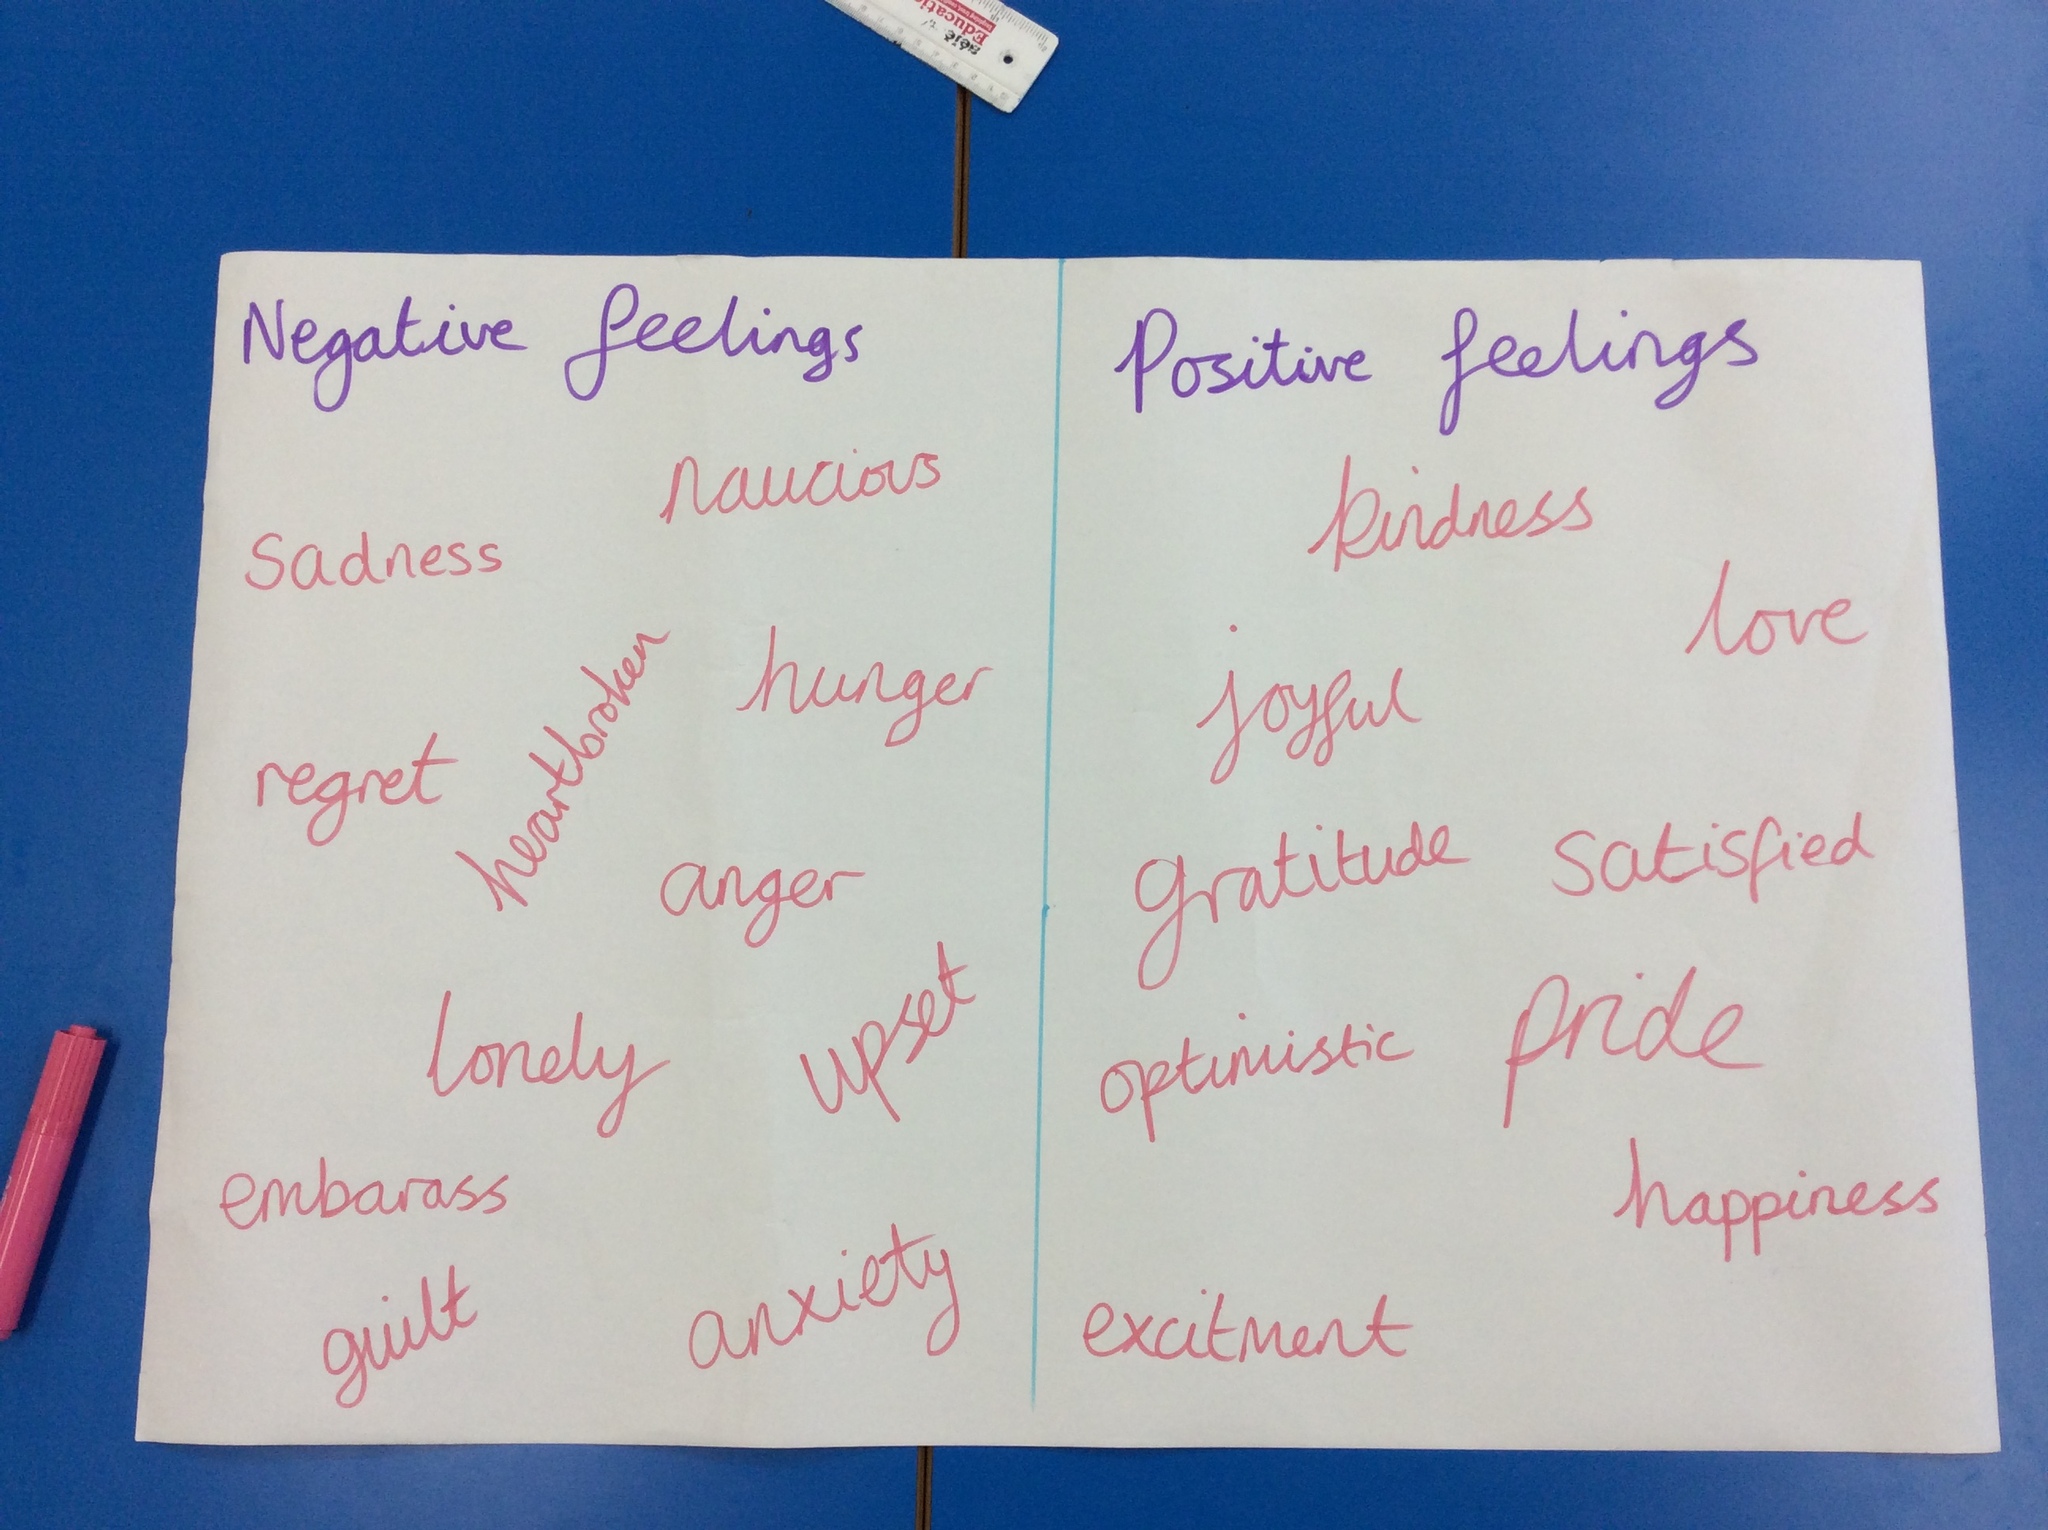 Educatio
Negative feelings
naucious
Sadness
heartbroken
hunger
regret
anger
lonely
upset
embarass
guilt
anxiety
Positive feelings
kindness
love
joyful
gratitude
satisfied
optimistic
pride
happiness
excitment